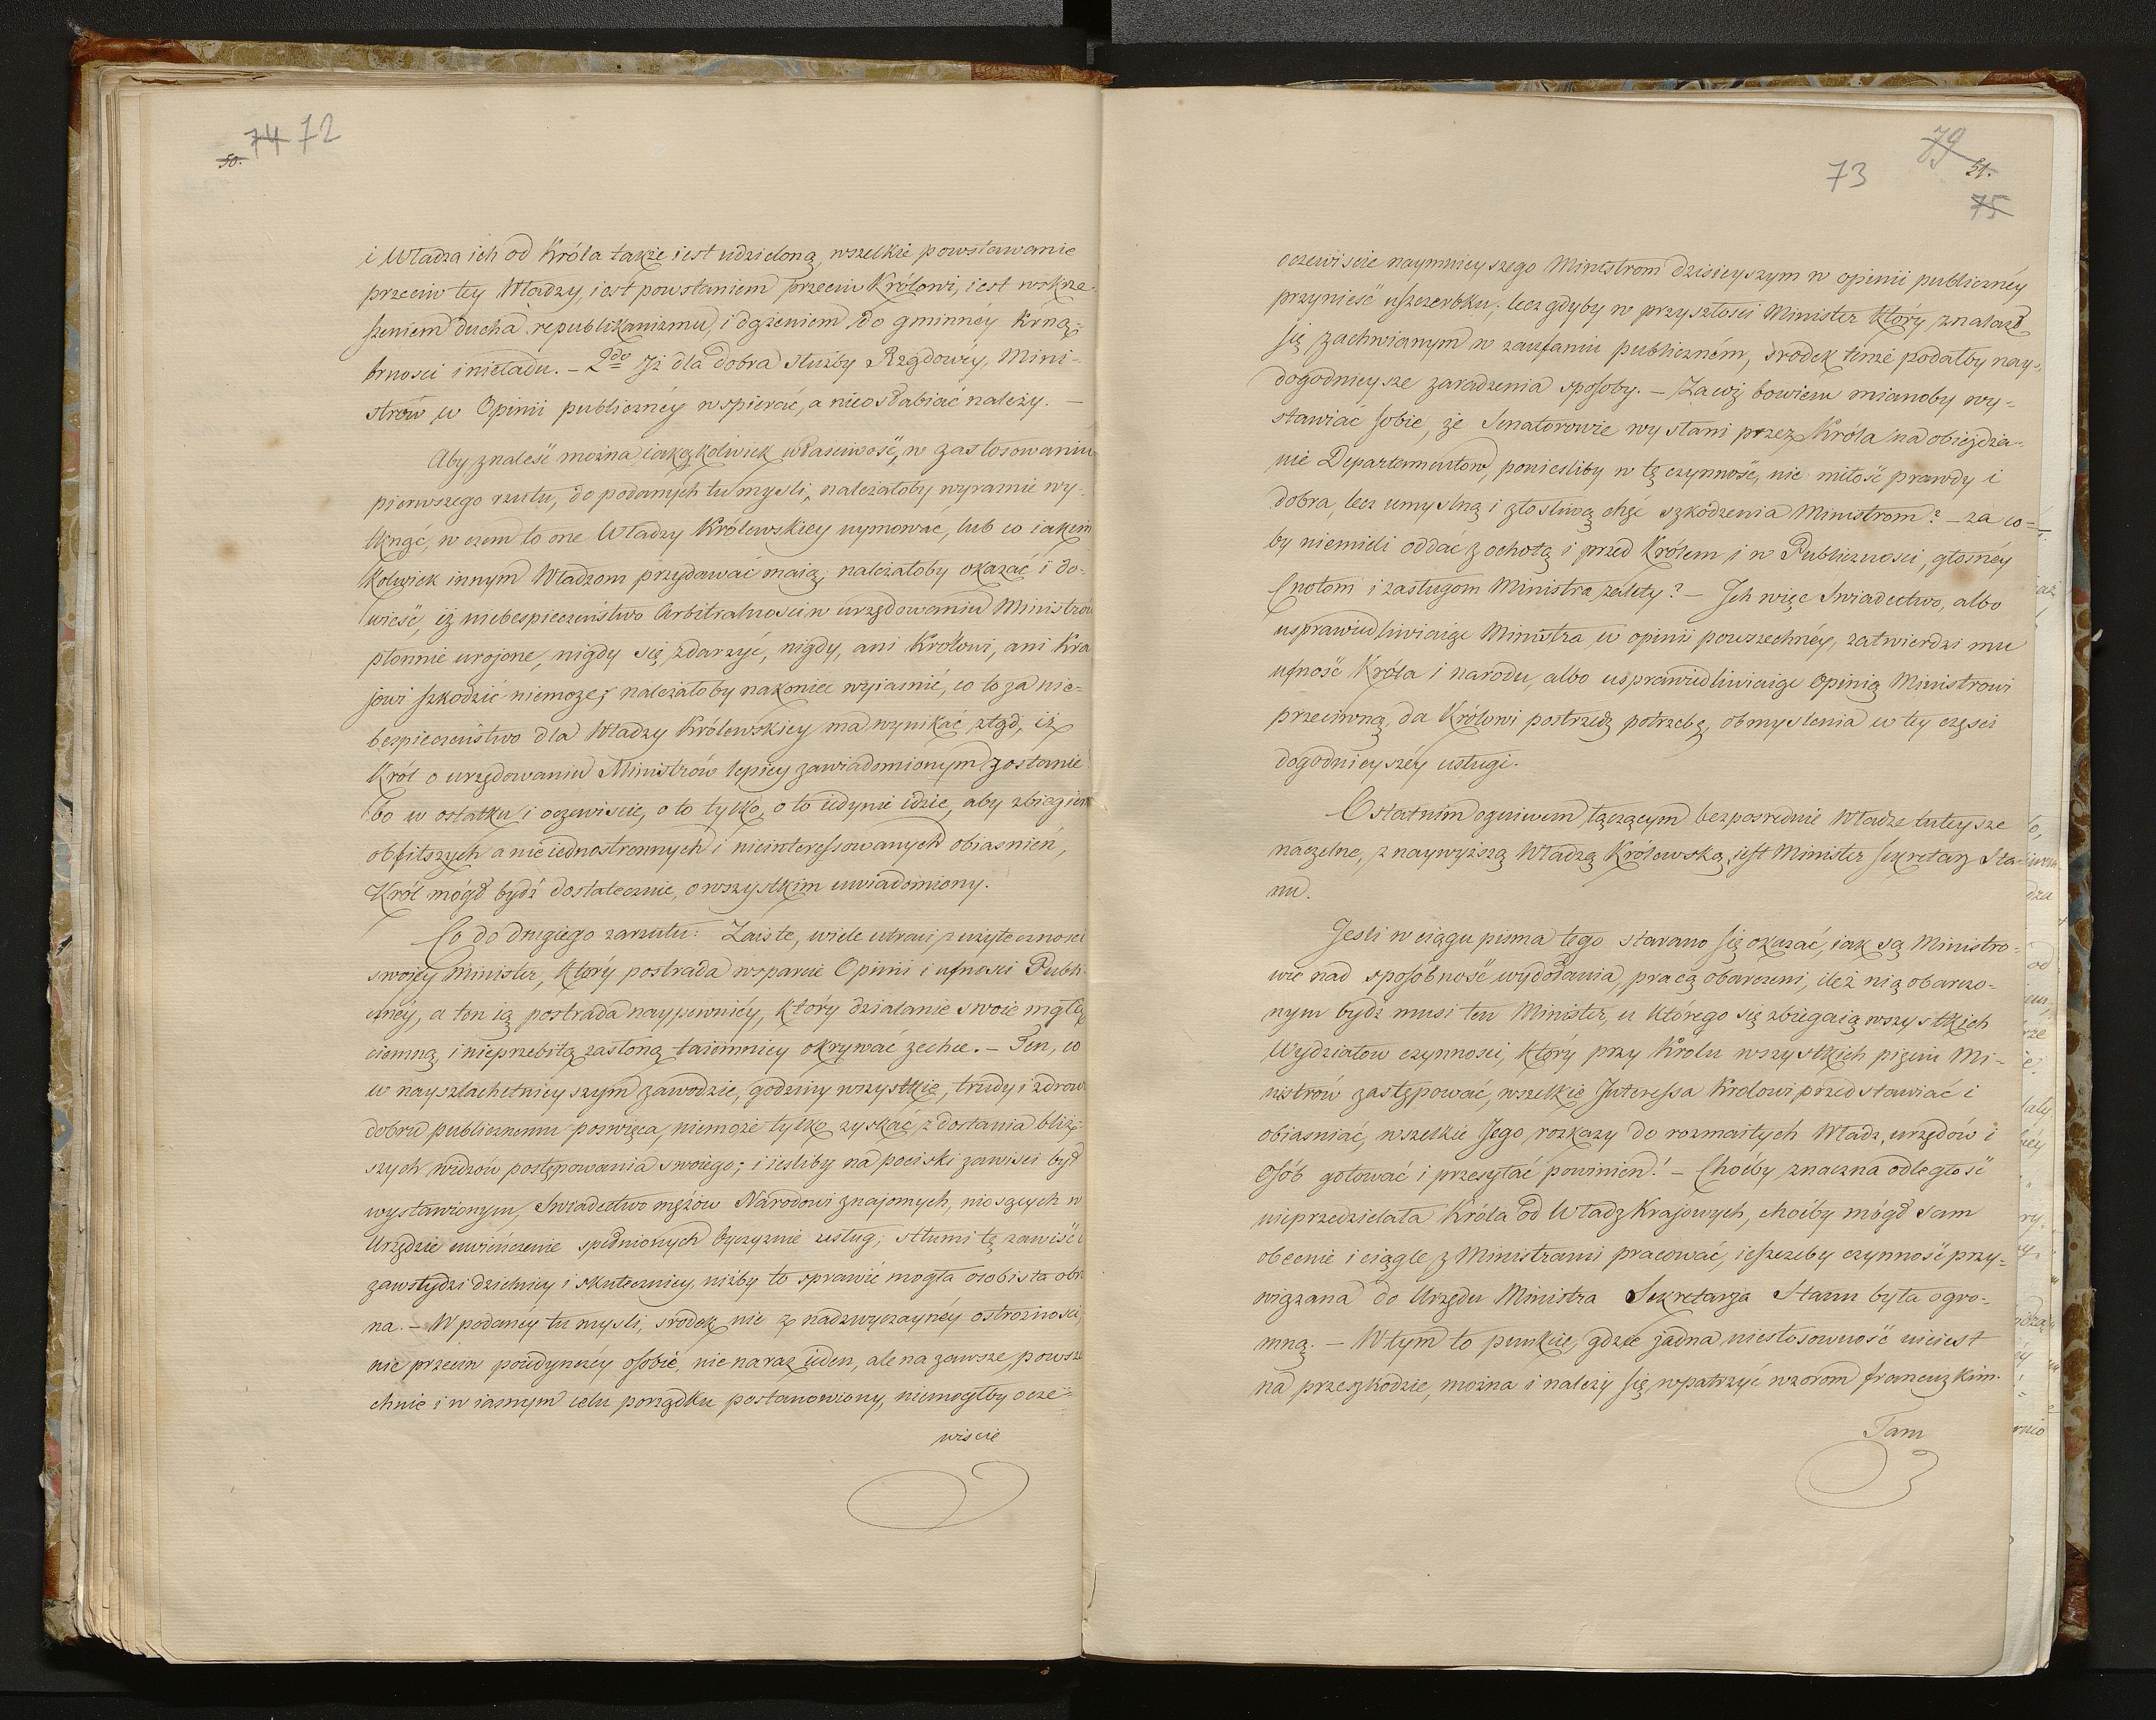 50. 74 72
i Władza ich od Króla także iest udzieloną, wszelkie powstawanie
przeciw tey Władzy, iest powstaniem przeciw Królowi, iest wskrze-
szeniem ducha republikanizmu, i dążeniem do gminnéy krną-
brnosci i nieładu. – 2do Iż dla dobra służby Rządowéy, Mini-
strów w Opinii publicznéy wspierać, a nieosłabiać należy. –
Aby znaleść można iakążkolwiek właściwość, w zastosowaniu
pierwszego rzutu, do podanych tu mysli, należałoby wyraznie wy-
tknąć, w czem to one Władzy Królewskiey uymować, lub co iakim
kolwiek innym Władzom przydawać maią; należałoby okazać i do-
wieść, iż niebespieczeństwo Arbitralnosci w urzędowaniu Ministrów
płonnie urojone, nigdy się zdarzyć, nigdy, ani Królowi, ani Kra
jowi szkodzić niemoże; należałoby nakoniec wyiasnić, co to za nie-
bespieczeństwo dla Władzy Królewskiey ma wynikać ztąd, iż
Król o urzędowaniu Ministrów lepiey zawiadomionym zostanie
bo w ostatku i oczewiscie, o to tylko, o to iedynie idzie, aby zbiegiem
obfitszych a nie iednostronnych i nieinteressowanych obiasnień,
Król mógł bydź dostatecznie, o wszystkim uwiadomiony.
Co do drugiego zarzutu: Zaiste, wiele utraci z użytecznosci
swojey Minister, który postrada wsparcie Opinii i ufnosci Publi-
cznéy, a ten ią postrada naypewniéy, który działanie swoie mgłą
ciemną i nieprzebitą zasłoną taiemnicy okrywać zechce. – Ten, co
w nayszlachetnieyszym zawodzie, godziny wszystkie, trudy i zdrow
dobru publicznemu poswięca, niemoże tylko zyskać z dostania bliż-
szych widzów postępowania swoiego; i iesliby na pociski zawisci był
wystawionym, Swiadectwo mężów Narodowi znajomych, niosących w
Urzędzie uwieńczenie spełnionych Oyczyznie usług, stłumi tę zawiść i
zawstydzi dzielniey i skuteczniey, niżby to sprawić mogła osobista obro
na. – W podanéy tu mysli, srodek nie z nadzwyczaynéy ostrożnosci,
nie przeciw poiedynczéy osobie, nie na raz ieden, ale na zawsze, powsze
chnie i w iasnym celu porządku postanowiony, niemógłby ocze-
wiscie
73 79 51. 75
oczewiscie naymnieyszego Ministrom dzisieyszym w opinii publicznéy
przynieść uszczerbku; lecz gdyby w przyszłosci Minister który znalazł
się zachwianym w zaufaniu publiczném, srodek tenże podałby nay-
dogodnieysze zaradzenia sposoby. – Za cóż bowiem mianoby wy-
stawiać sobie, że Senatorowie wysłani przez Króla na obieżdża-
nie Departamentow, poniesliby w tę czynność, nie miłość prawdy i
dobra, lecz umyslną i złosliwą chęć szkodzenia Ministrom? – za co-
by niemieli oddać z ochotą i przed Królem i w Publicznosci, głosnéy
Cnotom i zasługom Ministra zalety? – Ich więc Swiadectwo, albo
usprawiedliwiaiąc Ministra w opinii powszechnéy, zatwierdzi mu
ufność Króla i narodu, albo usprawiedliwiaiąc Opinią Ministrowi
przeciwną, da Królowi postrzedz potrzebę, obmyslenia w tey częsci
dogodnieyszéy usługi.
Ostatnim ogniwem łączącym bezposrednie Władze tuteysze
naczelne, z naywyższą Władzą Królewską, iest Minister Sekretarz Sta
nu.
Jesli w ciągu pisma tego starano się okazać, iak są Ministro-
wie nad sposobność wydołania, pracą obarczeni, ileż nią obarczo-
nym bydź musi ten Minister, u którego się zbiegaią wszystkich
Wydziałow czynnosci, który przy Królu wszystkich pięciu Mi-
nistrów zastępować, wszelkie Interessa Krolowi przedstawiać i
obiasniać, wszelkie Jego rozkazy do rozmaitych Władz, urzędów i
Osób gotować i przesyłać powinien! – Choćby znaczna odległość
nieprzedzielała Króla od Władz Krajowych, choćby mógł sam
obecnie i ciągle z Ministrami pracować, ieszczeby czynność przy-
wiązana do Urzędu Ministra Sekretarza Stanu była ogro-
mną. – W tym to punkcie, gdzie żadna niestosowność nieiest
na przeszkodzie, można i należy się wpatrzyć wzorom francuzkim.
Tam